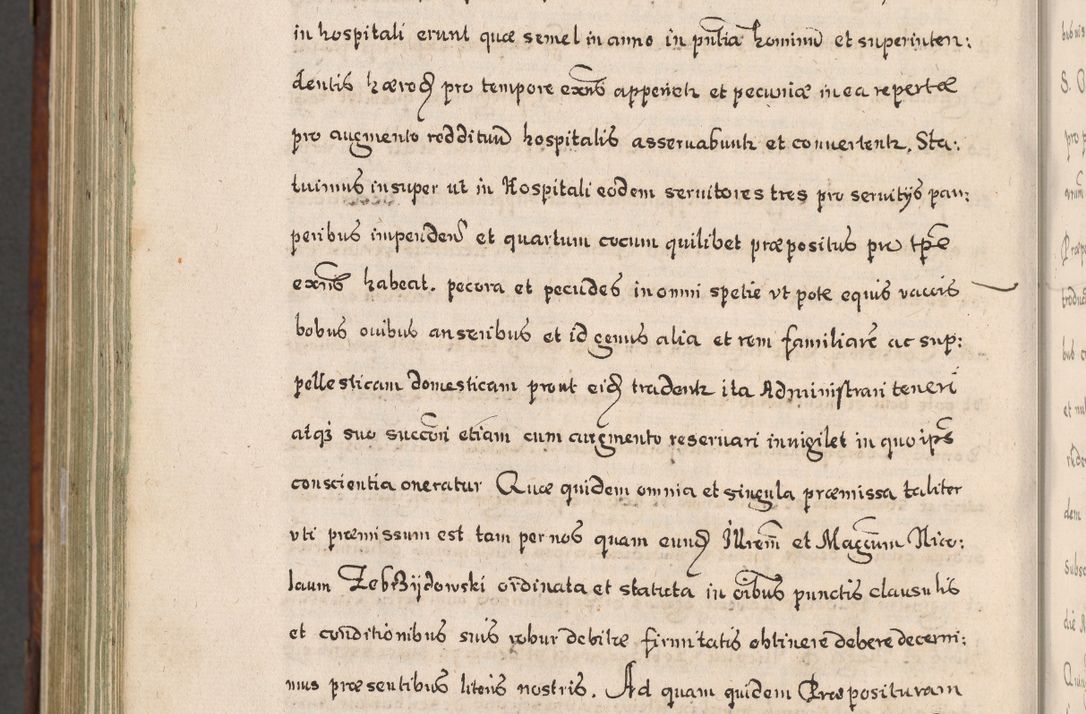 in hospitali erunt quæ semel in anno in pñtia hominũ et superinten:
dentis hæred pro tempore exñtis apperietr et pecuniæ in ea repertæ
pro augmento reddituũ hospitalis asseruabuntr et conuertentr, Sta:
tuimus insuper ut in Hospitali eodem seruitores tres pro seruitÿs pau:
peribus impendeñ et quartum cocum quilibet præpositus pro tp̃e
exñtis habeat. pecora et pecudes in omni spetie vt pote equis vaccis
bobus ouibus anseribus et id genus alia et rem familiarẽ ac sup:
pellesticam domesticam prout eid tradentr ita Administrari teneri
atq3 suo succõri etiam cum augmento reseruari inuigilet in quo ips̃
conscientia oneratur Quæ quidem omnia et singula præmissa taliter
vti præmissum est tam per nos quam eund Illrem̃ et Magcum̃ Nico:
laum ZebrZijdowski ordinata et statuta in oĩbus punctis clausulis
et conditionibus suis robur debitæ firmitatis obtinere debere decerni:
mus præsentibus literis nostris. Ad quam quidem Præposituram
bus
S.
pro p
Præp
bus c
et nul
dem
subsc
die